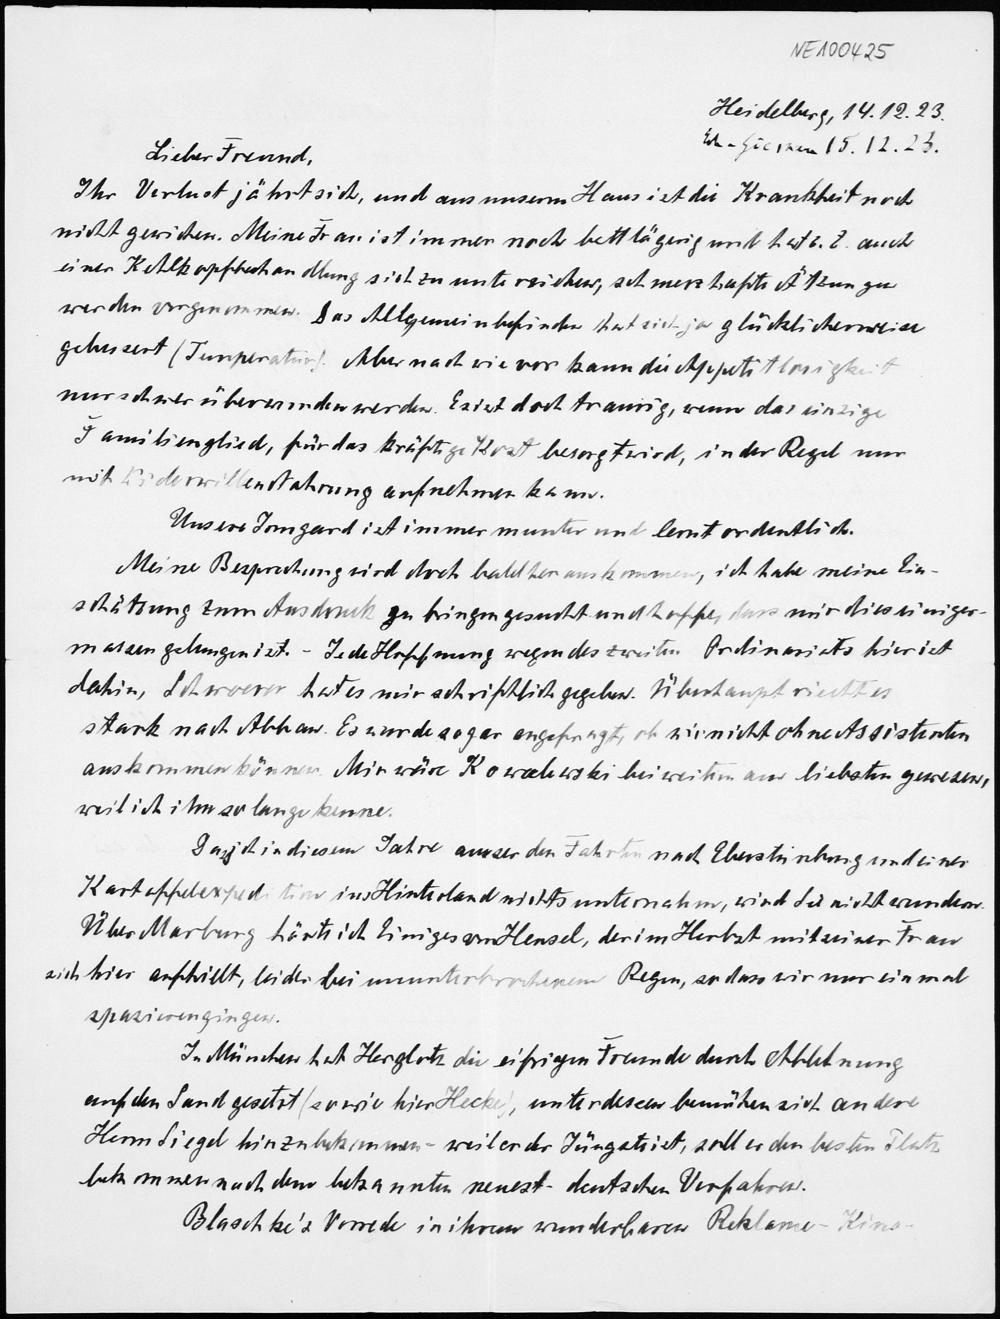 NE100425
Heidelberg, 14.12.23.
15.12.23.
Lieber Freund,
Ihr Verlust jährt sich, und aus unserm Haus ist die Krankheit noch
nicht gewichen. Meine Frau ist immer noch bettlägerig und hat z. Z. auch
einer Kehlkopfbehandlung sich zu unterziehen, schmerzhafte Ätzungen
werden vorgenommen. Das Allgemeinbefinden hat sich ja glücklicherweise
gebessert (Temperatur). Aber nach wie vor kann die Appetitlosigkeit
nur schwer überwunden werden. Es ist doch traurig, wenn das einzige
Familienglied, für das kräftige Kost besorgt wird, in der Regel nur
mit Widerwillen Nahrung aufnehmen kann.
Unsere Irmgard ist immer munter und lernt ordentlich.
Meine Besprechung wird doch bald herauskommen, ich habe meine Ein-
schätzung zum Ausdruck zu bringen gesucht und hoffe, dass mir dies einiger-
massen gelungen ist. - Jede Hoffnung wegen des zweiten Ordinariats hier ist
dahin, Schwoerer hat es mir schriftlich gegeben. Überhaupt riecht es
stark nach Abbau. Es wurde sogar angefragt, ob wir nicht ohne Assistenten
auskommen können. Mir wäre Kowalewski bei weitem am liebsten gewesen,
weil ich ihn so lange kenne.
Dass ich in diesem Jahre ausser den Fahrten nach Ebersteinburg und einer
Kartoffelexpedition ins Hinterland nichts unternahm, wird Sie nicht wundern.
Über Marburg hörte ich Einiges von Hensel, der im Herbst mit seiner Frau
sich hier aufhielt, leider bei ununterbrochenem Regen, so dass wir nur einmal
spazierengingen.
In München hat Herglotz die eifrigen Freunde durch Ablehnung
auf den Sand gesetzt (sowie hier Hecke), unterdessen bemühen sich andere
Herrn Siegel hinzubekommen - weil er der Jüngste ist, soll er den besten Platz
bekommen nach dem bekannten neuest-deutschen Verfahren.
Blaschke's Vorrede in ihrem wunderbaren Reklame-Kino-